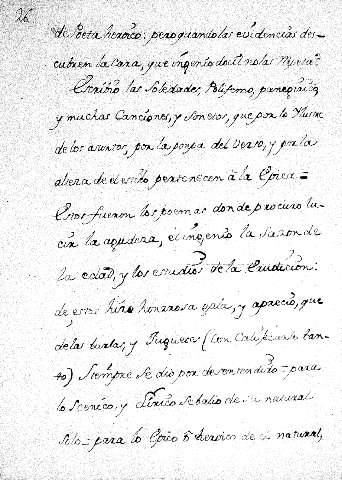 26
de Poeta heroico: pero quando las evidencias des-
cubren la cara, que ingenio docil no las
Escribio las Soledades, Polifemo, panegirico,
y muchas Canciones, y Sonetos, que por lo Ilustre
de los asuntos, por la pompa del verso, y por la
alteza de el estilo pertenecen à la Epica =
Estos fueron los poemas donde procuro lu-
cir la agudeza, el ingenio la sazon de
la edad, y los estudios de la Erudision:
de estas hizo honrrosa gala, y aprecio, que
de las burlas, y Juguetes (con Calif tan-
to) Siempre se dio por desentendido = para
lo Scenico, y Lirico se balio de su natural
solo = para lo Epico ò heroico de el natural,